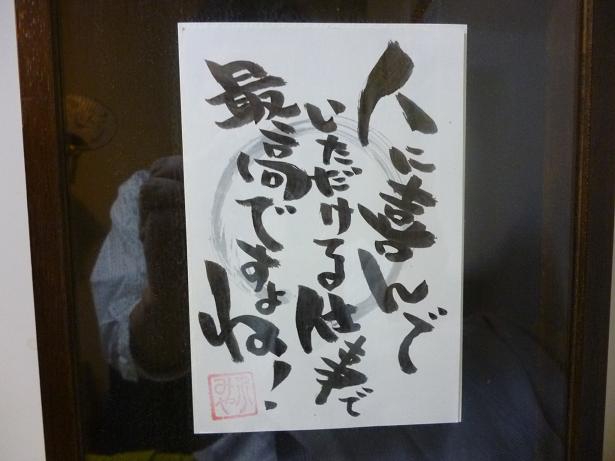 人に喜んで
いただける仕事で
最高ですよね!